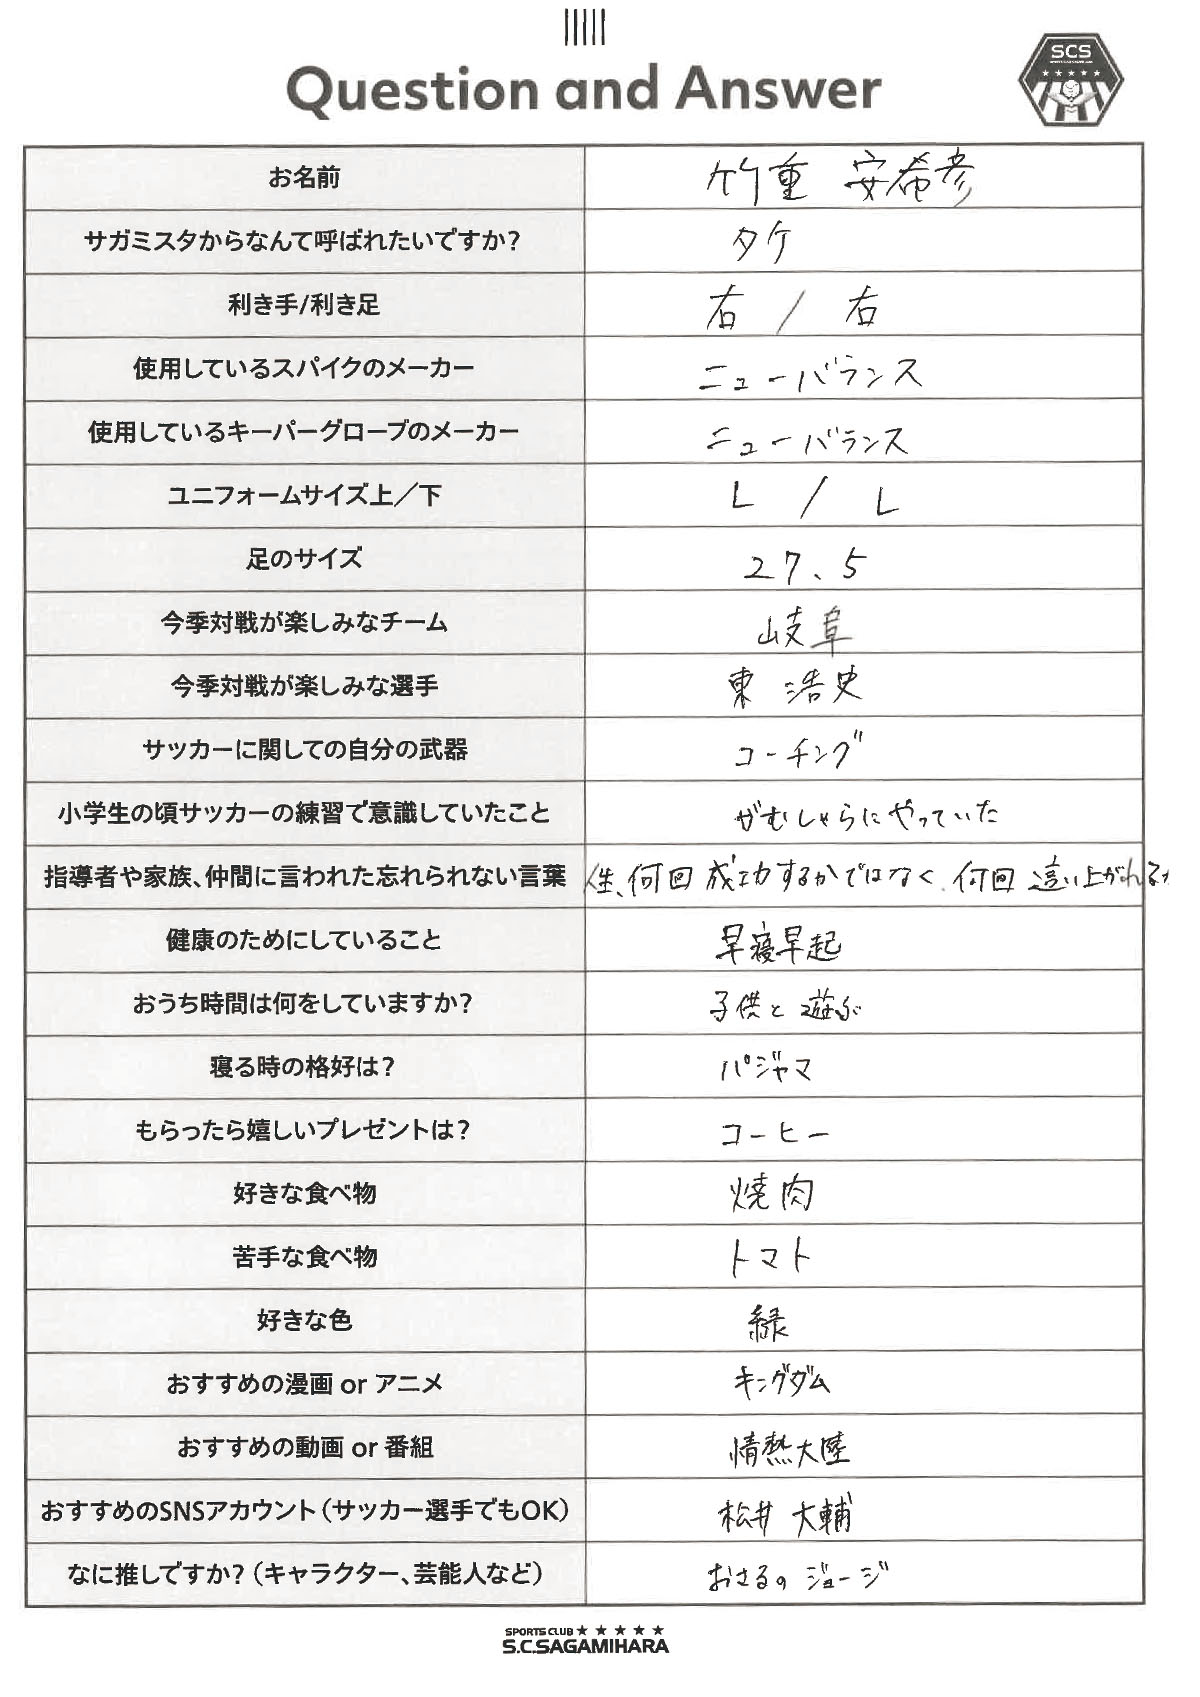 Question and Answer
SCS
お名前 竹重 安希彦
サガミスタからなんて呼ばれたいですか？ タケ
利き手/利き足 右 / 右
使用しているスパイクのメーカー ニューバランス
使用しているキーパーグローブのメーカー ニューバランス
ユニフォームサイズ上／下 L / L
足のサイズ 27、5
今季対戦が楽しみなチーム 岐阜
今季対戦が楽しみな選手 東 浩史
サッカーに関しての自分の武器 コーチング
小学生の頃サッカーの練習で意識していたこと がむしゃらにやっていた
指導者や家族、仲間に言われた忘れられない言葉 人生、何回 成功するかではなく、何回 這い上がれるか
健康のためにしていること 早寝早起
おうち時間は何をしていますか？ 子供と遊ぶ
寝る時の格好は？ パジャマ
もらったら嬉しいプレゼントは？ コーヒー
好きな食べ物 焼肉
苦手な食べ物 トマト
好きな色 緑
おすすめの漫画 or アニメ キングダム
おすすめの動画 or 番組 情熱大陸
おすすめのSNSアカウント（サッカー選手でもOK） 松井 大輔
なに推しですか？（キャラクター、芸能人など） おさるのジョージ
SPORTS CLUB ★ ★ ★ ★ ★
S.C.SAGAMIHARA